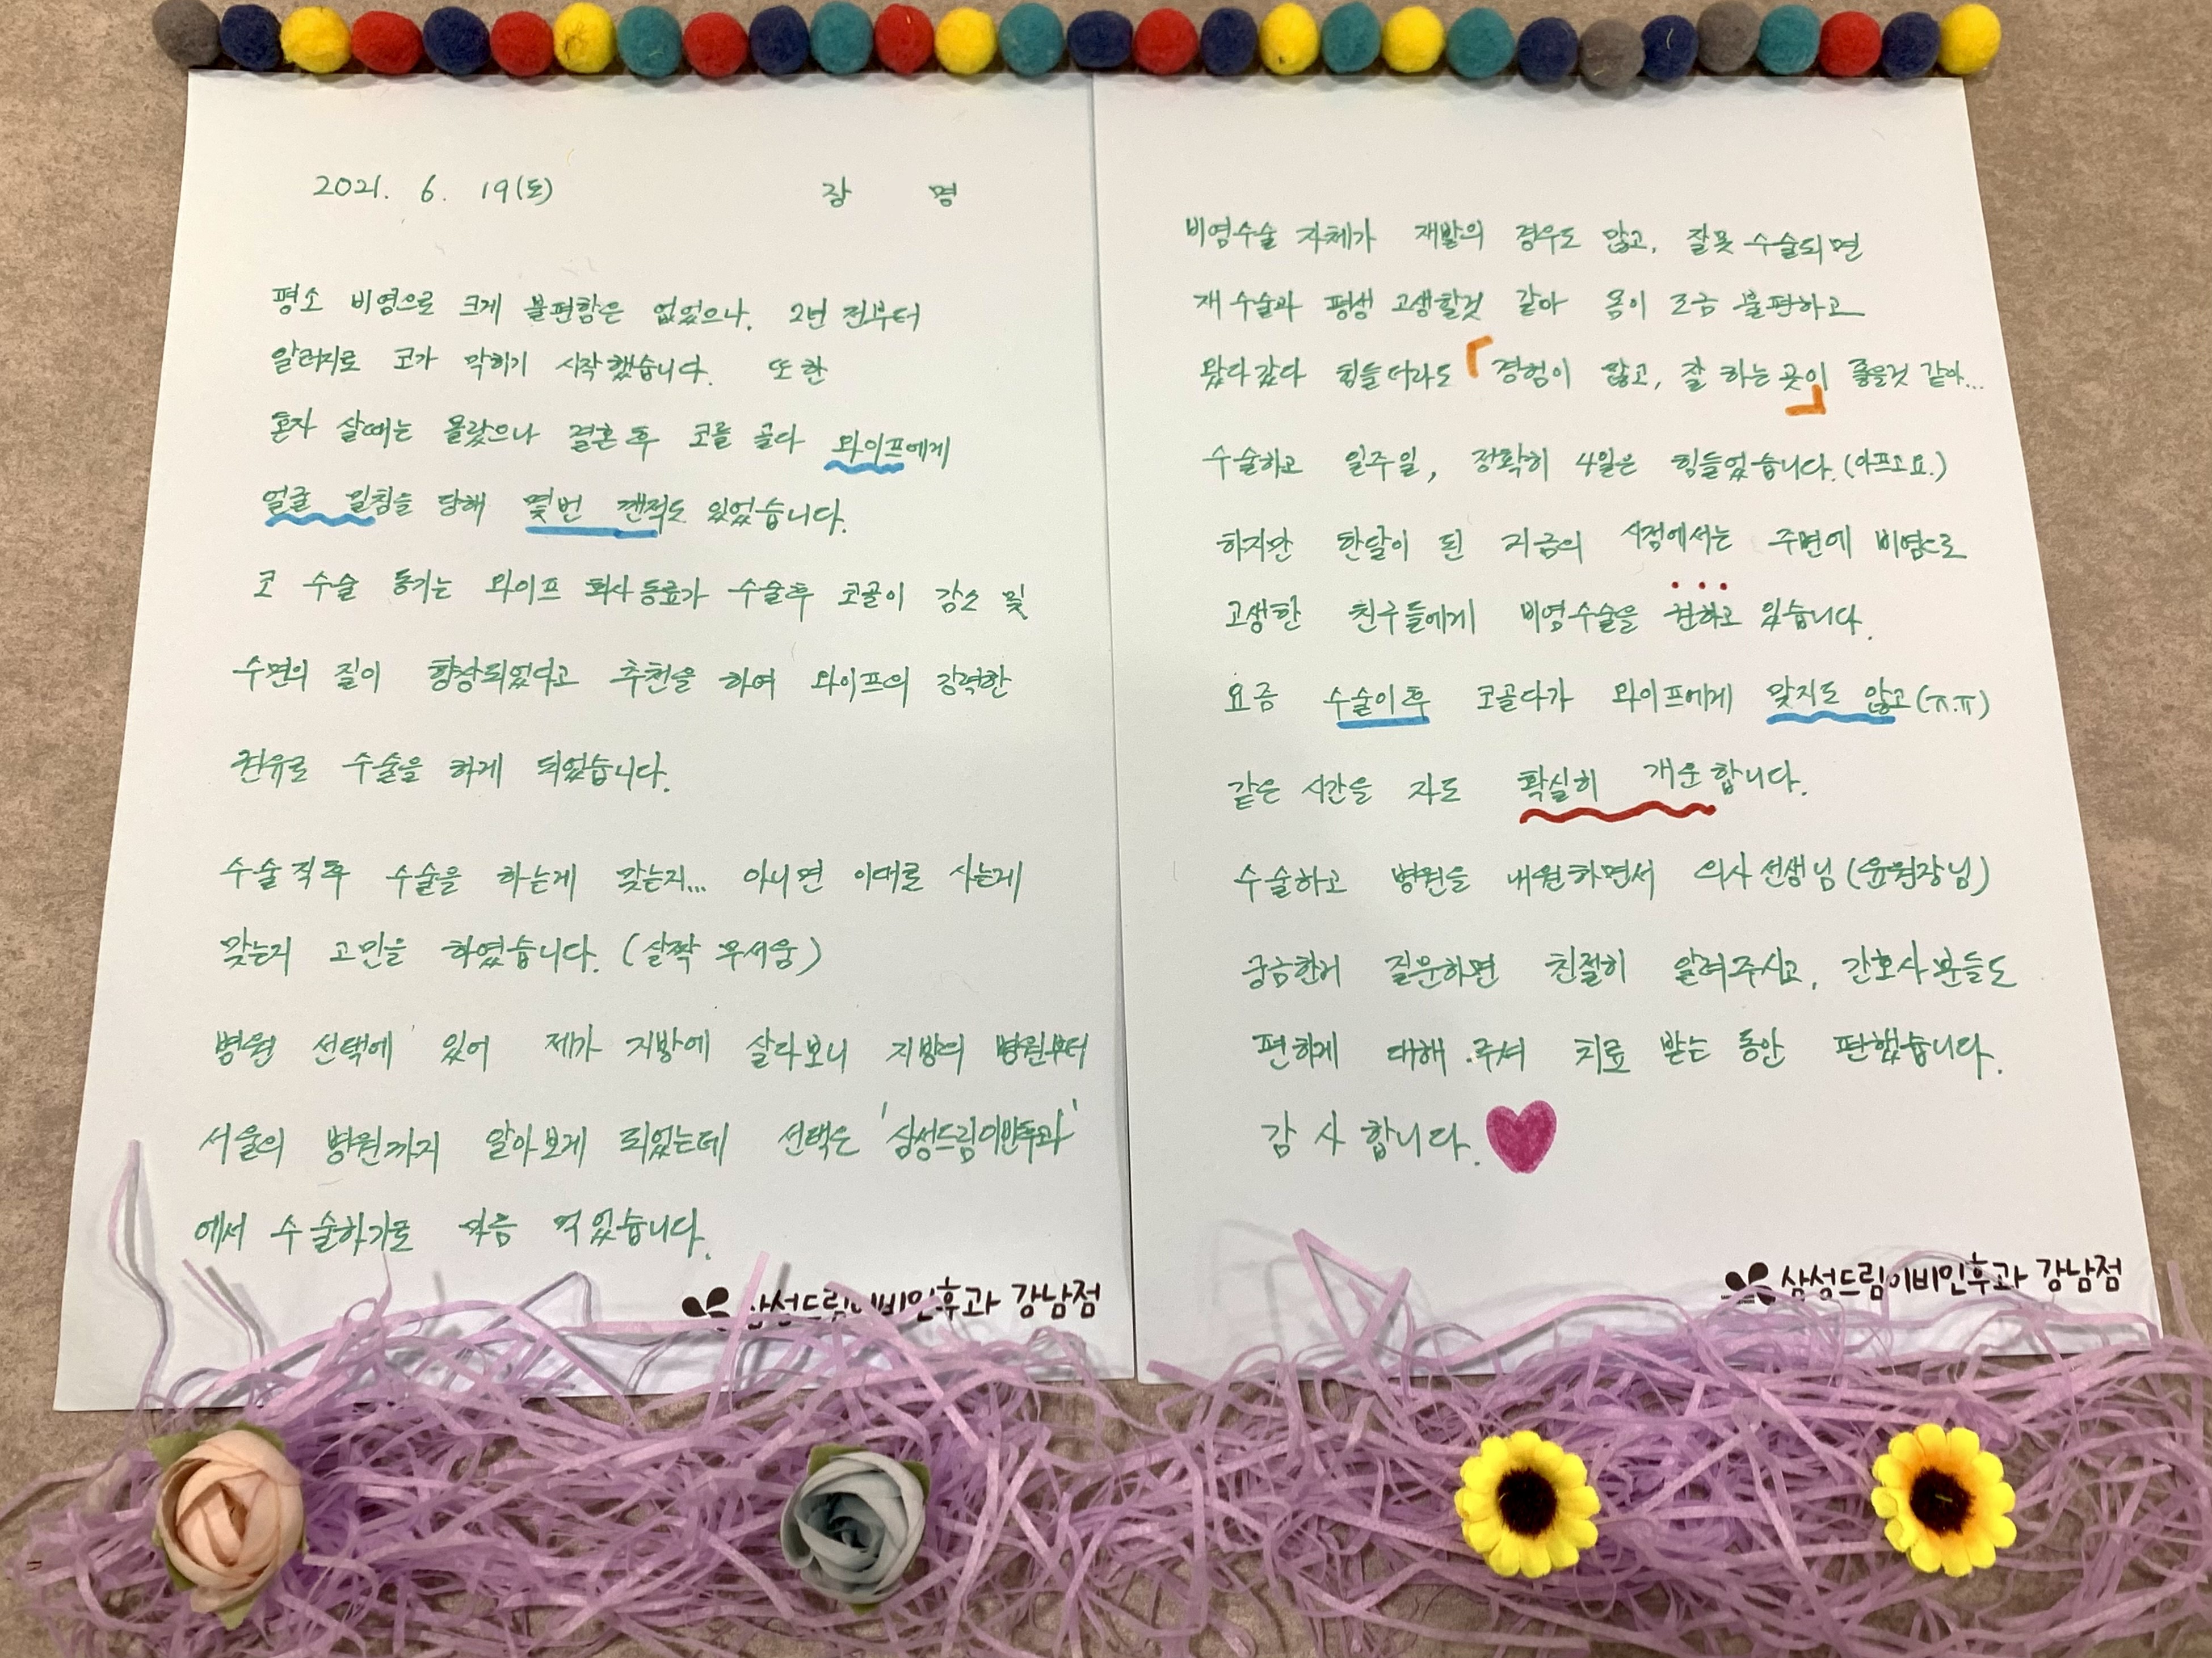 2021. 6. 19(토) 장 명
평소 비염으로 크게 불편함은 없었으나. 2년 전부터
알러지로 코가 막히기 시작했습니다. 또한
혼자 살때는 몰랐으나 결혼 후 코를 골다 와이프에게
얼굴 밀침을 당해 몇번 깬적도 있었습니다.
코 수술 동기는 와이프 회사동료가 수술후 코골이 감소 및
수면의 질이 향상되었다고 추천을 하여 와이프의 강력한
권유로 수술을 하게 되었습니다.
수술직후 수술을 하는게 맞는지... 아니면 이대로 사는게
맞는지 고민을 하였습니다. (살짝 무서움)
병원 선택에 있어 제가 지방에 살다보니 지방의 병원부터
서울의 병원까지 알아보게 되었는데 선택은 '삼성드림이비인후과'
에서 수술하기로 마음 먹었습니다.
삼성드림이비인후과 강남점
비염수술 자체가 재발의 경우도 많고, 잘못 수술되면
재수술과 평생 고생할것 같아 몸이 조금 불편하고
왔다갔다 힘들더라도 「경험이 많고, 잘 하는 곳이」 좋을것 같아...
수술하고 일주일, 정확히 4일은 힘들었습니다. (아프고요.)
하지만 한달이 된 지금의 시점에서는 주변에 비염으로
고생한 친구들에게 비염수술을 권하고 있습니다.
요즘 수술이후 코골다가 와이프에게 맞지도 않고(ㅠ.ㅠ)
같은 시간을 자도 확실히 개운합니다.
수술하고 병원을 내원하면서 의사선생님(윤원장님)
궁금한거 질문하면 친절히 알려주시고, 간호사분들도
편하게 대해 주셔 치료 받는 동안 편했습니다.
감사합니다.
삼성드림이비인후과 강남점